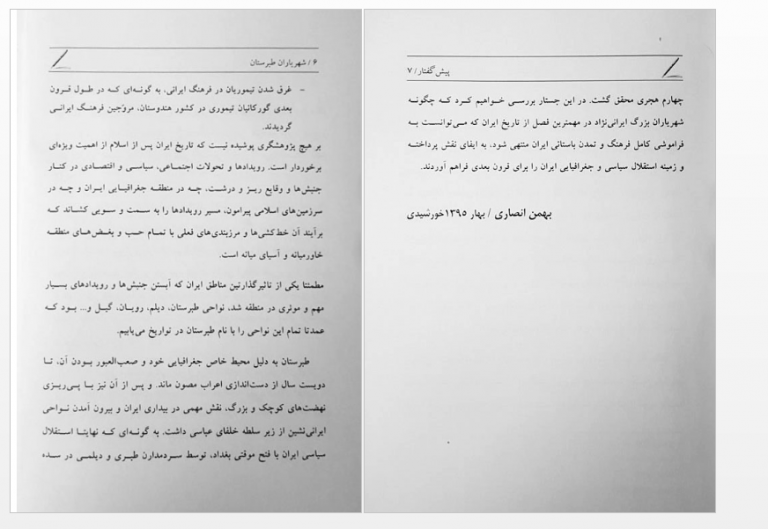 ۶ / شهریاران طبرستان
- غرق شدن تیموریان در فرهنگ ایرانی، به گونه‌ای که در طول قرون
بعدی گورکانیان تیموری در کشور هندوستان، مروّجین فرهنگ ایرانی
گردیدند.
بر هیچ پژوهشگری پوشیده نیست که تاریخ ایران پس از اسلام از اهمیت ویژه‌ای
برخوردار است. رویدادها و تحولات اجتماعی، سیاسی و اقتصادی در کنار
جنبش‌ها و وقایع ریز و درشت، چه در منطقه جغرافیایی ایران و چه در
سرزمین‌های اسلامی پیرامون، مسیر رویدادها را به سمت و سویی کشاند که
برآیند آن خط‌کشی‌ها و مرزبندی‌های فعلی با تمام حب و بغض‌های منطقه
خاورمیانه و آسیای میانه است.
مطمئنا یکی از تاثیرگذارترین مناطق ایران که آبستن جنبش‌ها و رویدادهای بسیار
مهم و موثری در منطقه شد، نواحی طبرستان، دیلم، رویان، گیل و... بود که
عمدتا تمام این نواحی را با نام طبرستان در تواریخ می‌یابیم.
طبرستان به دلیل محیط خاص جغرافیایی خود و صعب‌العبور بودن آن، تا
دویست سال از دست‌اندازی اعراب مصون ماند. و پس از آن نیز با پی‌ریزی
نهضت‌های کوچک و بزرگ، نقش مهمی در بیداری ایران و بیرون آمدن نواحی
ایرانی‌نشین از زیر سلطه خلفای عباسی داشت. به گونه‌ای که نهایتا استقلال
سیاسی ایران با فتح موقتی بغداد، توسط سردمدارن طبری و دیلمی در سده
پیش گفتار / ۷
چهارم هجری محقق گشت. در این جستار بررسی خواهیم کرد که چگونه
شهریاران بزرگ ایرانی‌نژاد در مهمترین فصل از تاریخ ایران که می‌توانست به
فراموشی کامل فرهنگ و تمدن باستانی ایران منتهی شود، به ایفای نقش پرداخته
و زمینه استقلال سیاسی و جغرافیایی ایران را برای قرون بعدی فراهم آوردند.
بهمن انصاری / بهار ۱۳۹۵خورشیدی